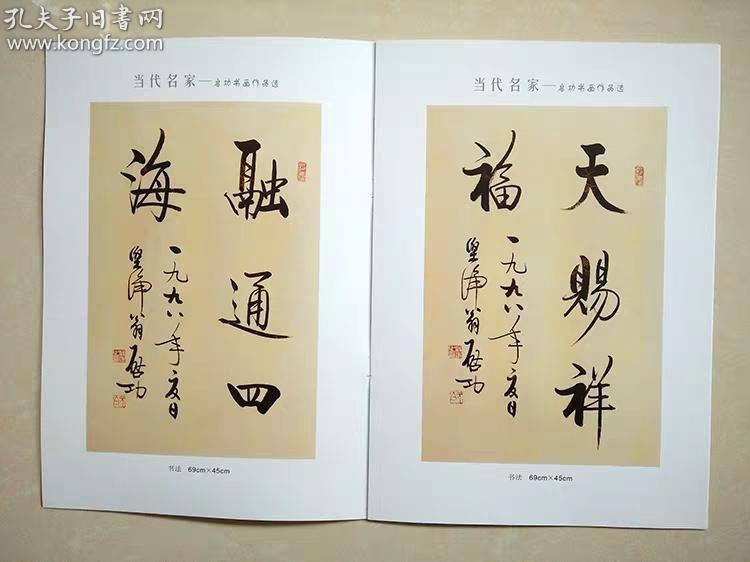 孔夫子旧书网
www.kongfz.com
当代名家—启功书画作品选
融通四
海
一九九八年夏日
坚净翁启功
书法 69cm×45cm
当代名家—启功书画作品选
天赐祥
福
一九九八年夏日
坚净翁启功
书法 69cm×45cm